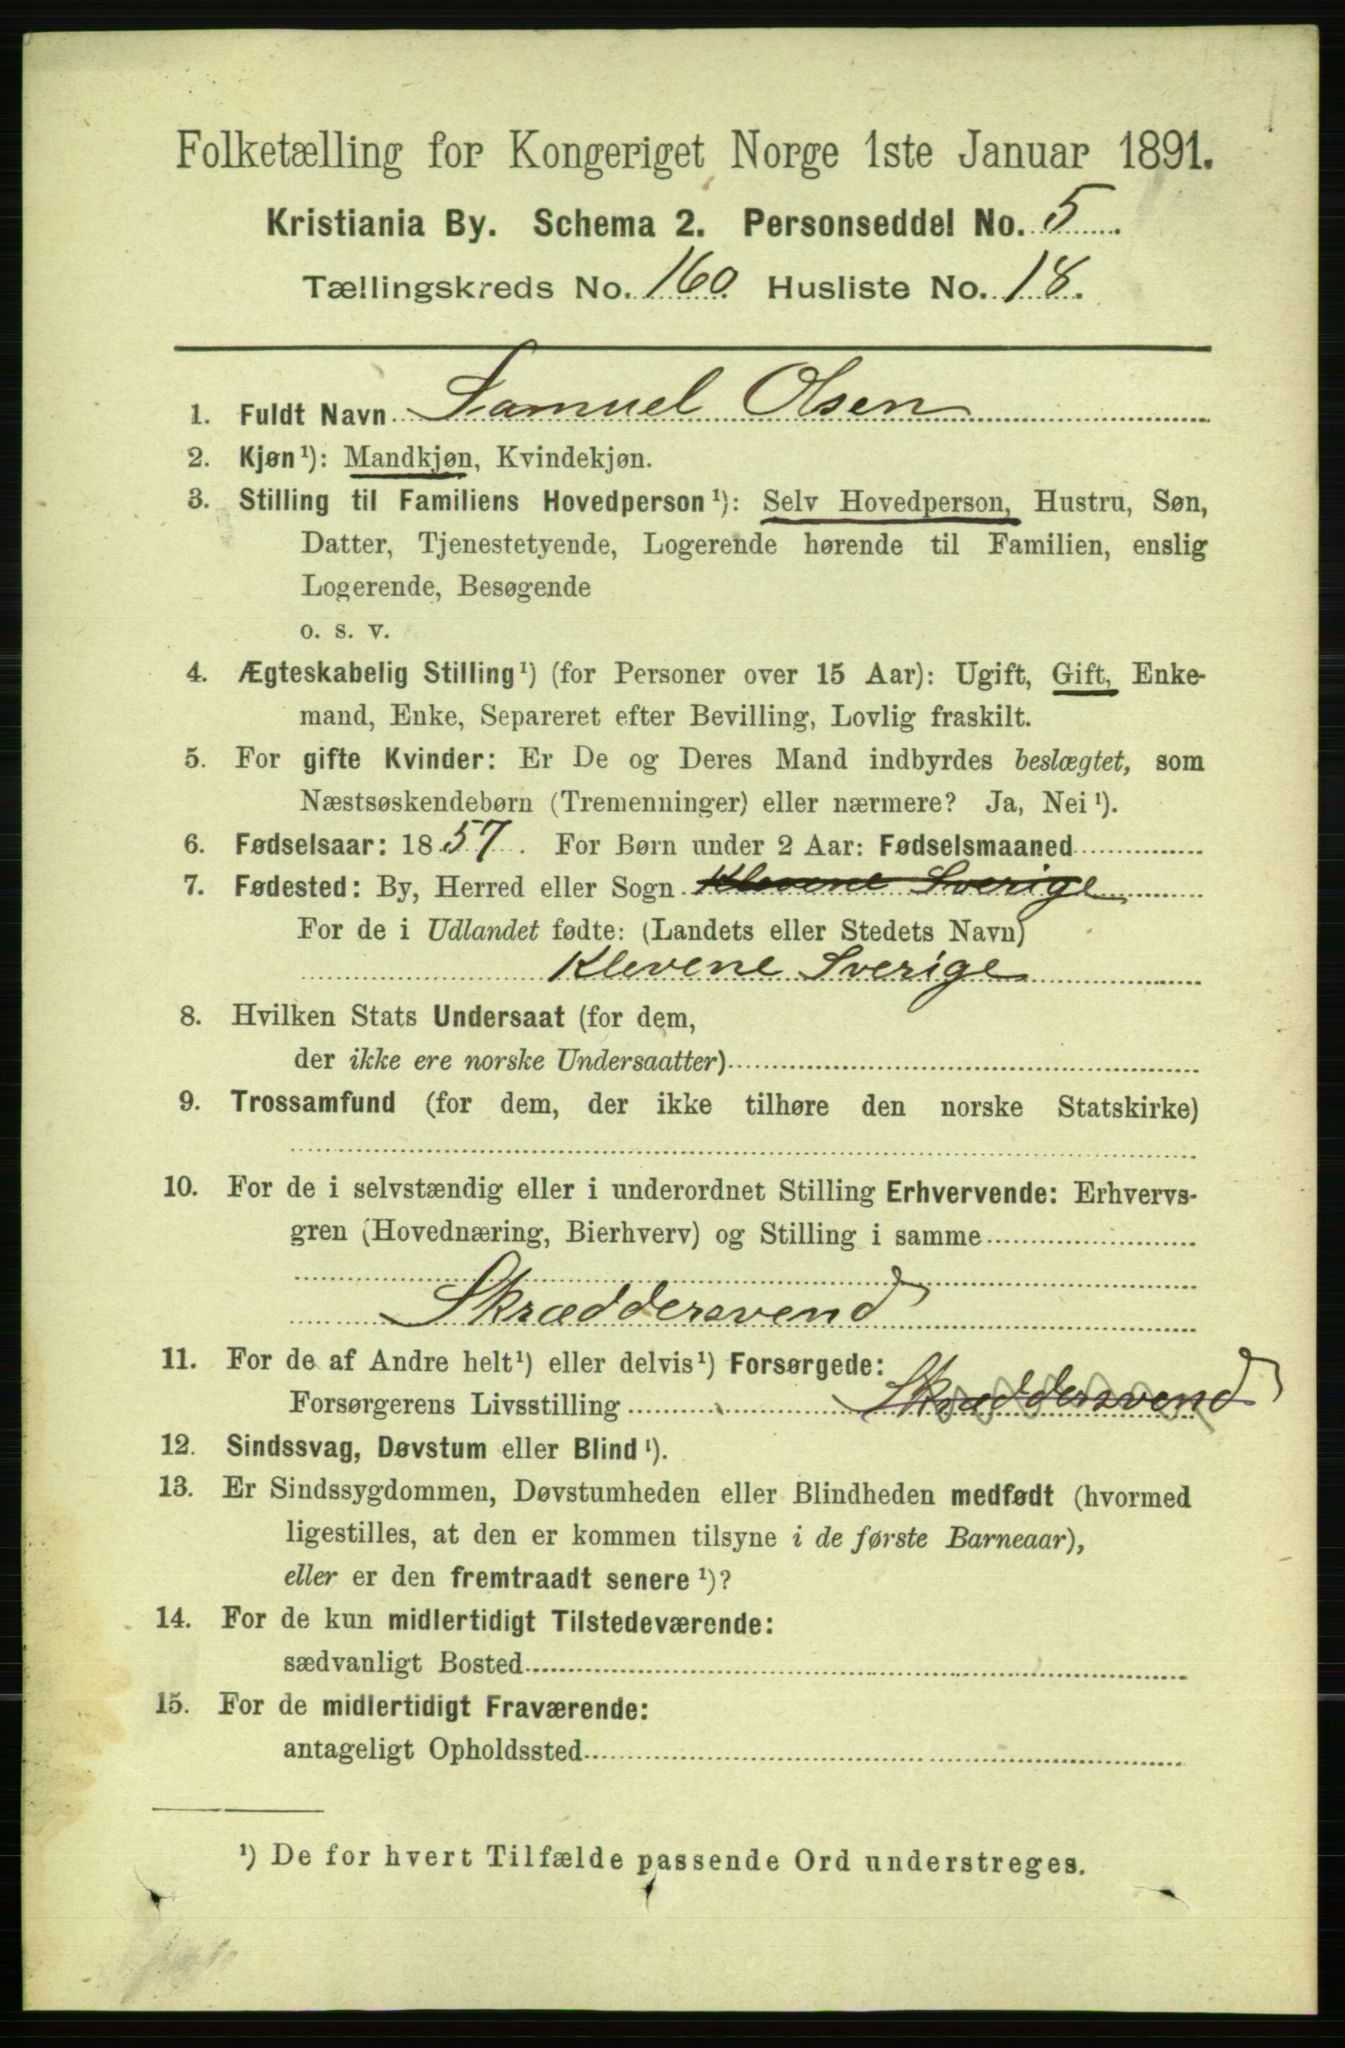 Folketælling for Kongeriget Norge 1ste Januar 1891.
Kristiania By. Schema 2. Personseddel No. 5
Tællingskreds No. 160. Husliste No. 18.
1. Fuldt Navn Samuel Olsen
2. Kjøn¹): Mandkjøn, Kvindekjøn.
3. Stilling til Familiens Hovedperson¹): Selv Hovedperson, Hustru, Søn,
Datter, Tjenestetyende, Logerende hørende til Familien, enslig
Logerende, Besøgende
o. s. v.
4. Ægteskabelig Stilling¹) (for Personer over 15 Aar): Ugift, Gift, Enke-
mand, Enke, Separeret efter Bevilling, Lovlig fraskilt.
5. For gifte Kvinder: Er De og Deres Mand indbyrdes beslægtet, som
Næstsøskendebørn (Tremenninger) eller nærmere? Ja, Nei¹).
6. Fødselsaar: 1857. For Børn under 2 Aar: Fødselsmaaned
7. Fødested: By, Herred eller Sogn Klevene Sverige
For de i Udlandet fødte: (Landets eller Stedets Navn)
Klevene Sverige
8. Hvilken Stats Undersaat (for dem,
der ikke ere norske Undersaatter)
9. Trossamfund (for dem, der ikke tilhøre den norske Statskirke)
10. For de i selvstændig eller i underordnet Stilling Erhvervende: Erhvervs-
gren (Hovednæring, Bierhverv) og Stilling i samme
Skræddersvend
11. For de af Andre helt¹) eller delvis¹) Forsørgede:
Forsørgerens Livsstilling Skræddersvend
12. Sindssvag, Døvstum eller Blind¹).
13. Er Sindssygdommen, Døvstumheden eller Blindheden medfødt (hvormed
ligestilles, at den er kommen tilsyne i de første Barneaar),
eller er den fremtraadt senere¹)?
14. For de kun midlertidigt Tilstedeværende:
sædvanligt Bosted
15. For de midlertidigt Fraværende:
antageligt Opholdssted
¹) De for hvert Tilfælde passende Ord understreges.